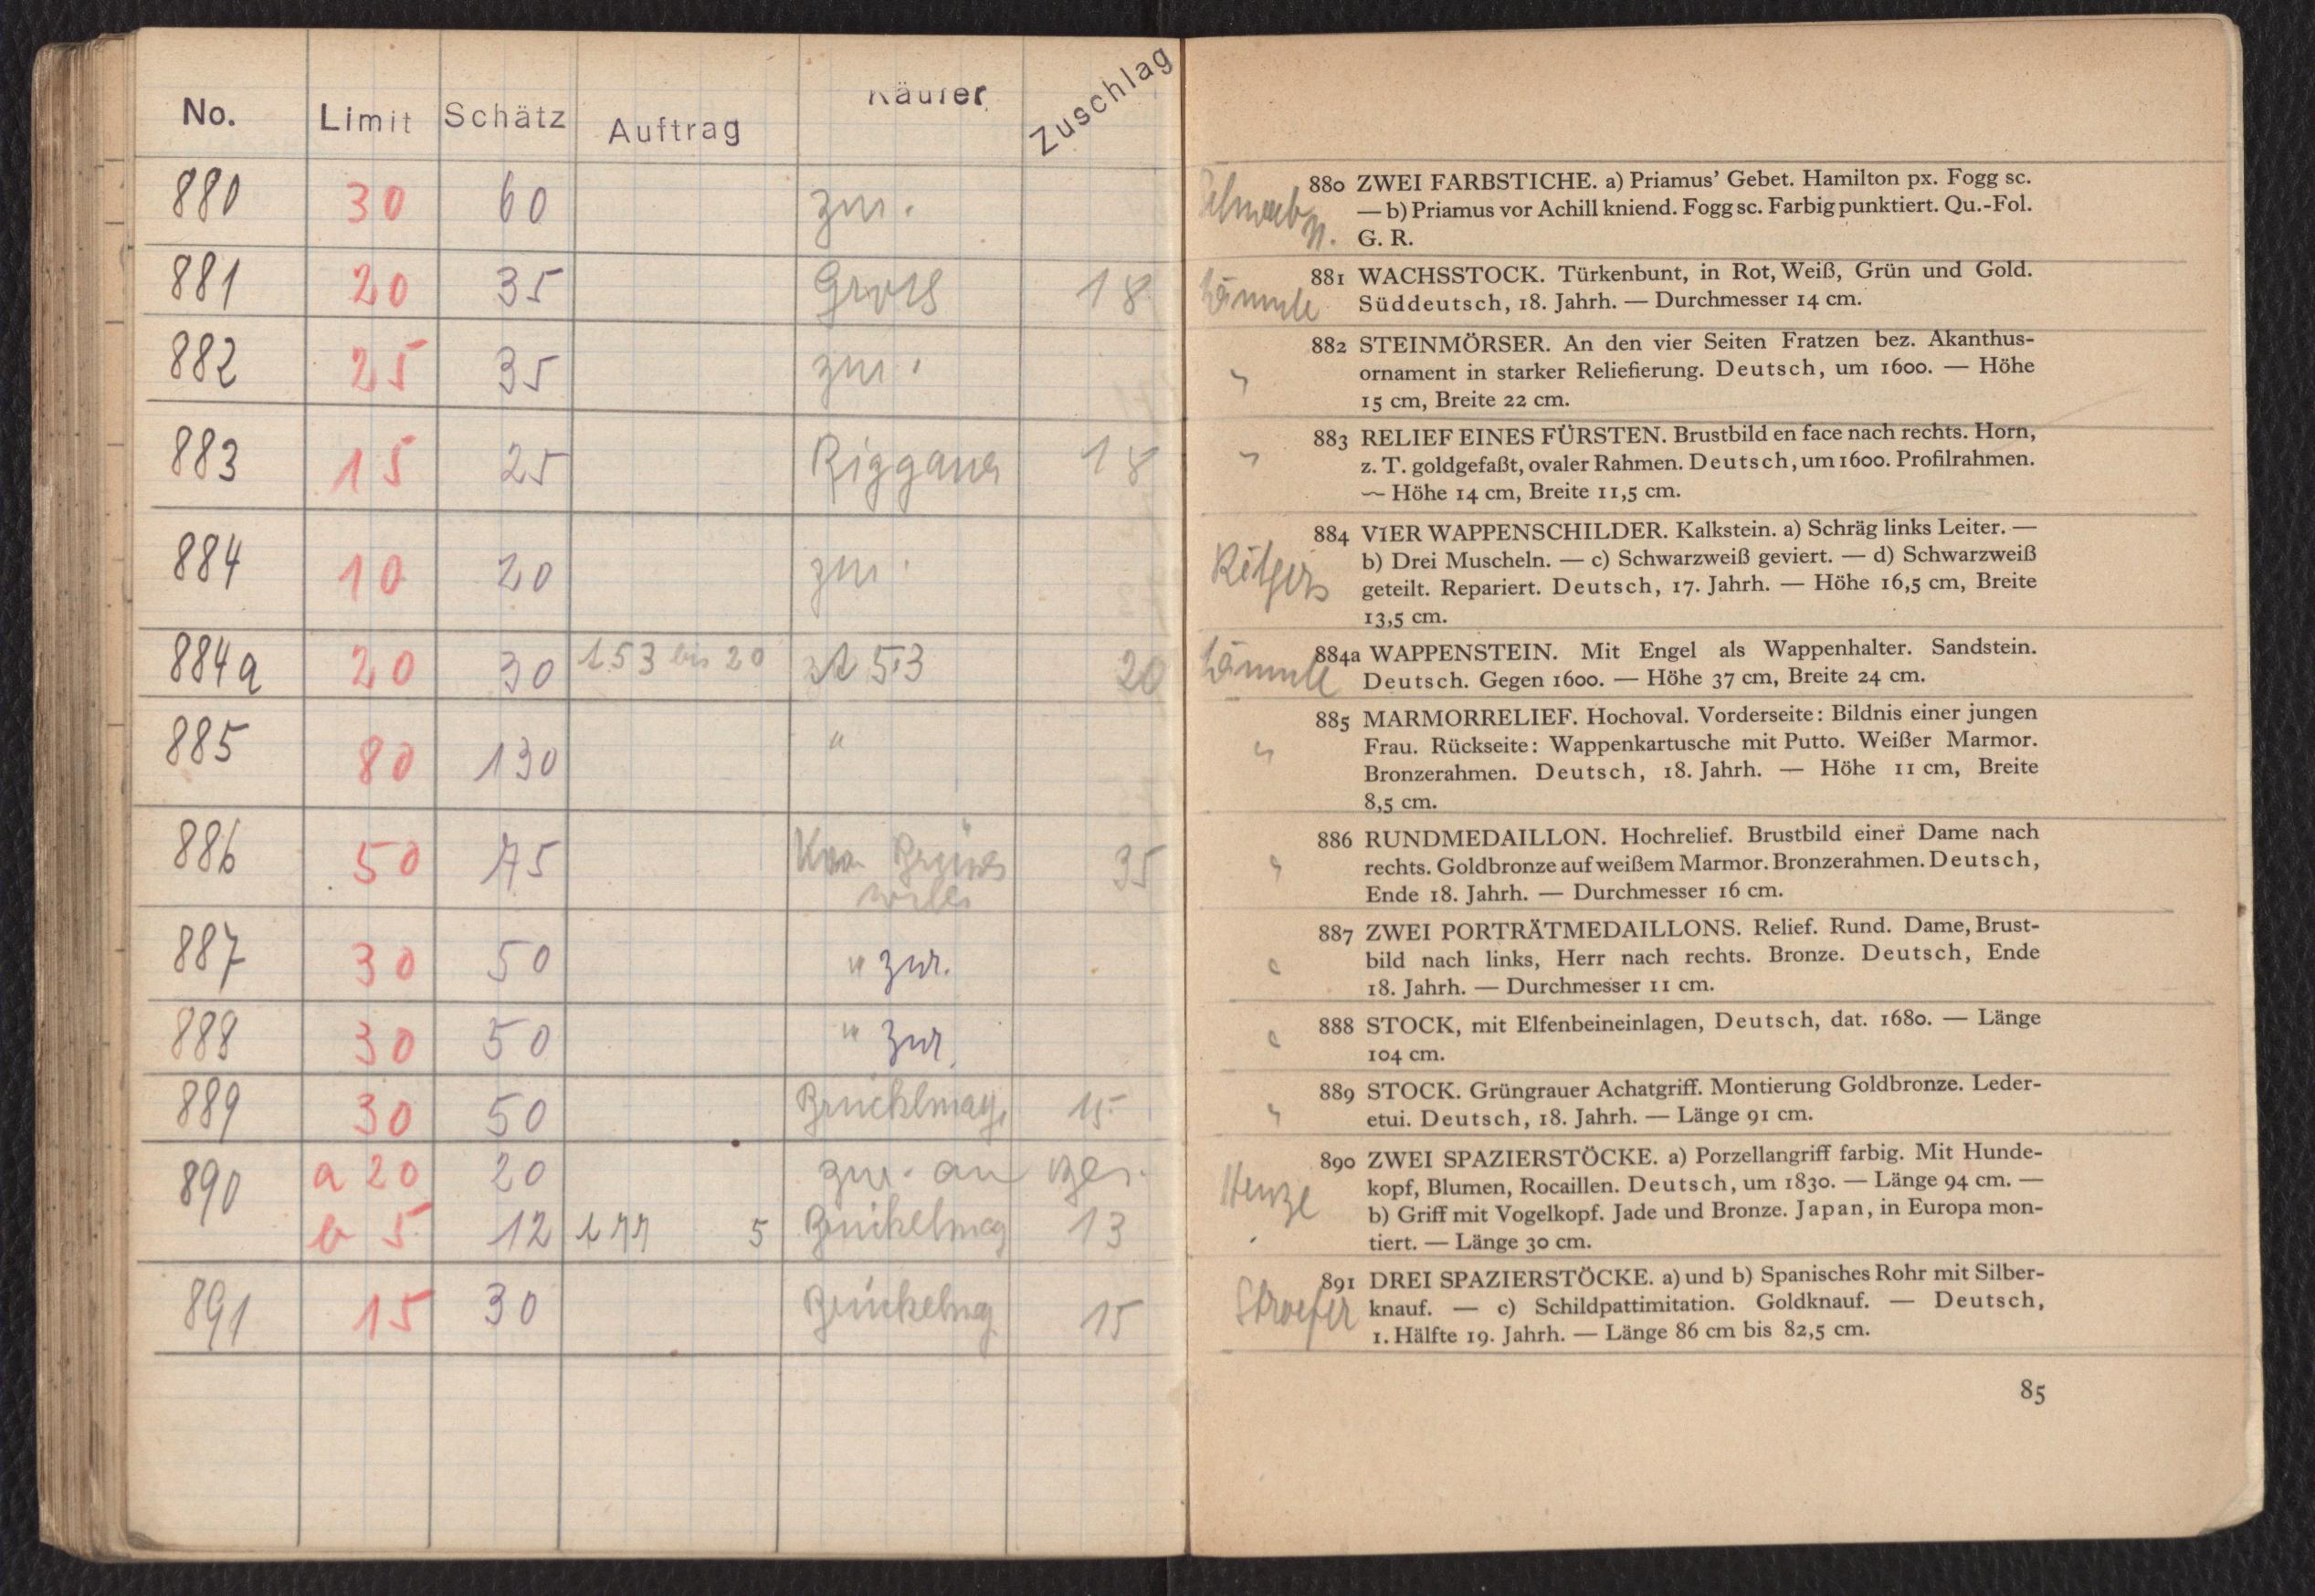 No. Limit Schätz Auftrag Käufer Zuschlag
880 30 60 zur.
881 20 35 Gross 18
882 25 35 zur.
883 15 25 18
884 10 20 zur.
884a 20 30 153 bis 20 53 20
885 80 130 "
886 50 75 35
887 30 50 " zur.
888 30 50 " zur.
889 30 50 15
890 a 20 20 zur. an Ges.
b 5 12 5 13
891 15 30 15
880 ZWEI FARBSTICHE. a) Priamus’ Gebet. Hamilton px. Fogg sc.
— b) Priamus vor Achill kniend. Fogg sc. Farbig punktiert. Qu.-Fol.
G. R.
881 WACHSSTOCK. Türkenbunt, in Rot, Weiß, Grün und Gold.
Lämmle Süddeutsch, 18. Jahrh. — Durchmesser 14 cm.
882 STEINMÖRSER. An den vier Seiten Fratzen bez. Akanthus-
" ornament in starker Reliefierung. Deutsch, um 1600. — Höhe
15 cm, Breite 22 cm.
883 RELIEF EINES FÜRSTEN. Brustbild en face nach rechts. Horn,
" z. T. goldgefaßt, ovaler Rahmen. Deutsch, um 1600. Profilrahmen.
— Höhe 14 cm, Breite 11,5 cm.
884 VIER WAPPENSCHILDER. Kalkstein. a) Schräg links Leiter. —
b) Drei Muscheln. — c) Schwarzweiß geviert. — d) Schwarzweiß
geteilt. Repariert. Deutsch, 17. Jahrh. — Höhe 16,5 cm, Breite
13,5 cm.
884a WAPPENSTEIN. Mit Engel als Wappenhalter. Sandstein.
Lämmle Deutsch. Gegen 1600. — Höhe 37 cm, Breite 24 cm.
885 MARMORRELIEF. Hochoval. Vorderseite: Bildnis einer jungen
" Frau. Rückseite: Wappenkartusche mit Putto. Weißer Marmor.
Bronzerahmen. Deutsch, 18. Jahrh. — Höhe 11 cm, Breite
8,5 cm.
886 RUNDMEDAILLON. Hochrelief. Brustbild einer Dame nach
" rechts. Goldbronze auf weißem Marmor. Bronzerahmen. Deutsch,
Ende 18. Jahrh. — Durchmesser 16 cm.
887 ZWEI PORTRÄTMEDAILLONS. Relief. Rund. Dame, Brust-
" bild nach links, Herr nach rechts. Bronze. Deutsch, Ende
18. Jahrh. — Durchmesser 11 cm.
888 STOCK, mit Elfenbeineinlagen, Deutsch, dat. 1680. — Länge
" 104 cm.
889 STOCK. Grüngrauer Achatgriff. Montierung Goldbronze. Leder-
" etui. Deutsch, 18. Jahrh. — Länge 91 cm.
890 ZWEI SPAZIERSTÖCKE. a) Porzellangriff farbig. Mit Hunde-
Henzl kopf, Blumen, Rocaillen. Deutsch, um 1830. — Länge 94 cm. —
b) Griff mit Vogelkopf. Jade und Bronze. Japan, in Europa mon-
tiert. — Länge 30 cm.
891 DREI SPAZIERSTÖCKE. a) und b) Spanisches Rohr mit Silber-
Stroefer knauf. — c) Schildpattimitation. Goldknauf. — Deutsch,
1. Hälfte 19. Jahrh. — Länge 86 cm bis 82,5 cm.
85